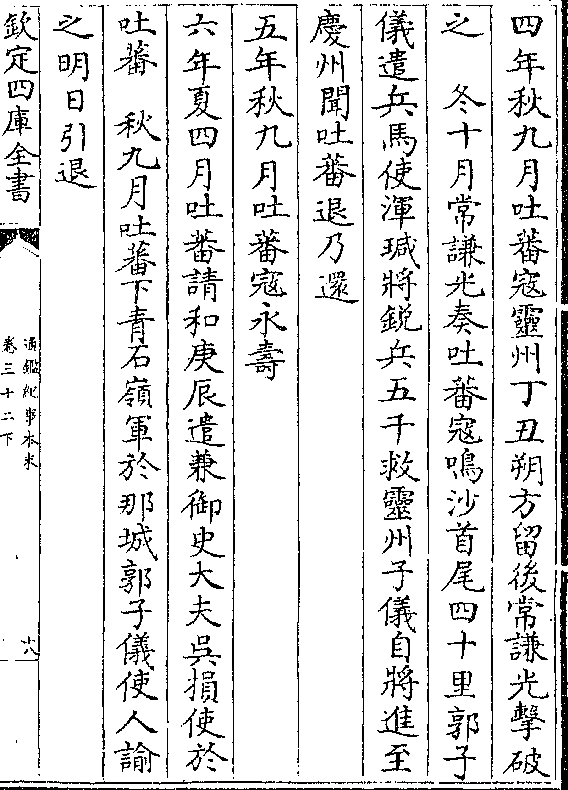 四年秋九月吐蕃寇靈州丁丑朔方留後常謙光擊破
之　冬十月常謙光奏吐蕃寇鳴沙首尾四十里郭子
儀遣兵馬使渾瑊將銳兵五千救靈州子儀自將進至
慶州聞吐蕃退乃還
五年秋九月吐蕃寇永壽
六年夏四月吐蕃請和庚辰遣兼御史大夫吳損使於
吐蕃　秋九月吐蕃下青石嶺軍於那城郭子儀使人諭
之明日引退
欽定四庫全書
通鑑紀事本末
卷三十二下
十八